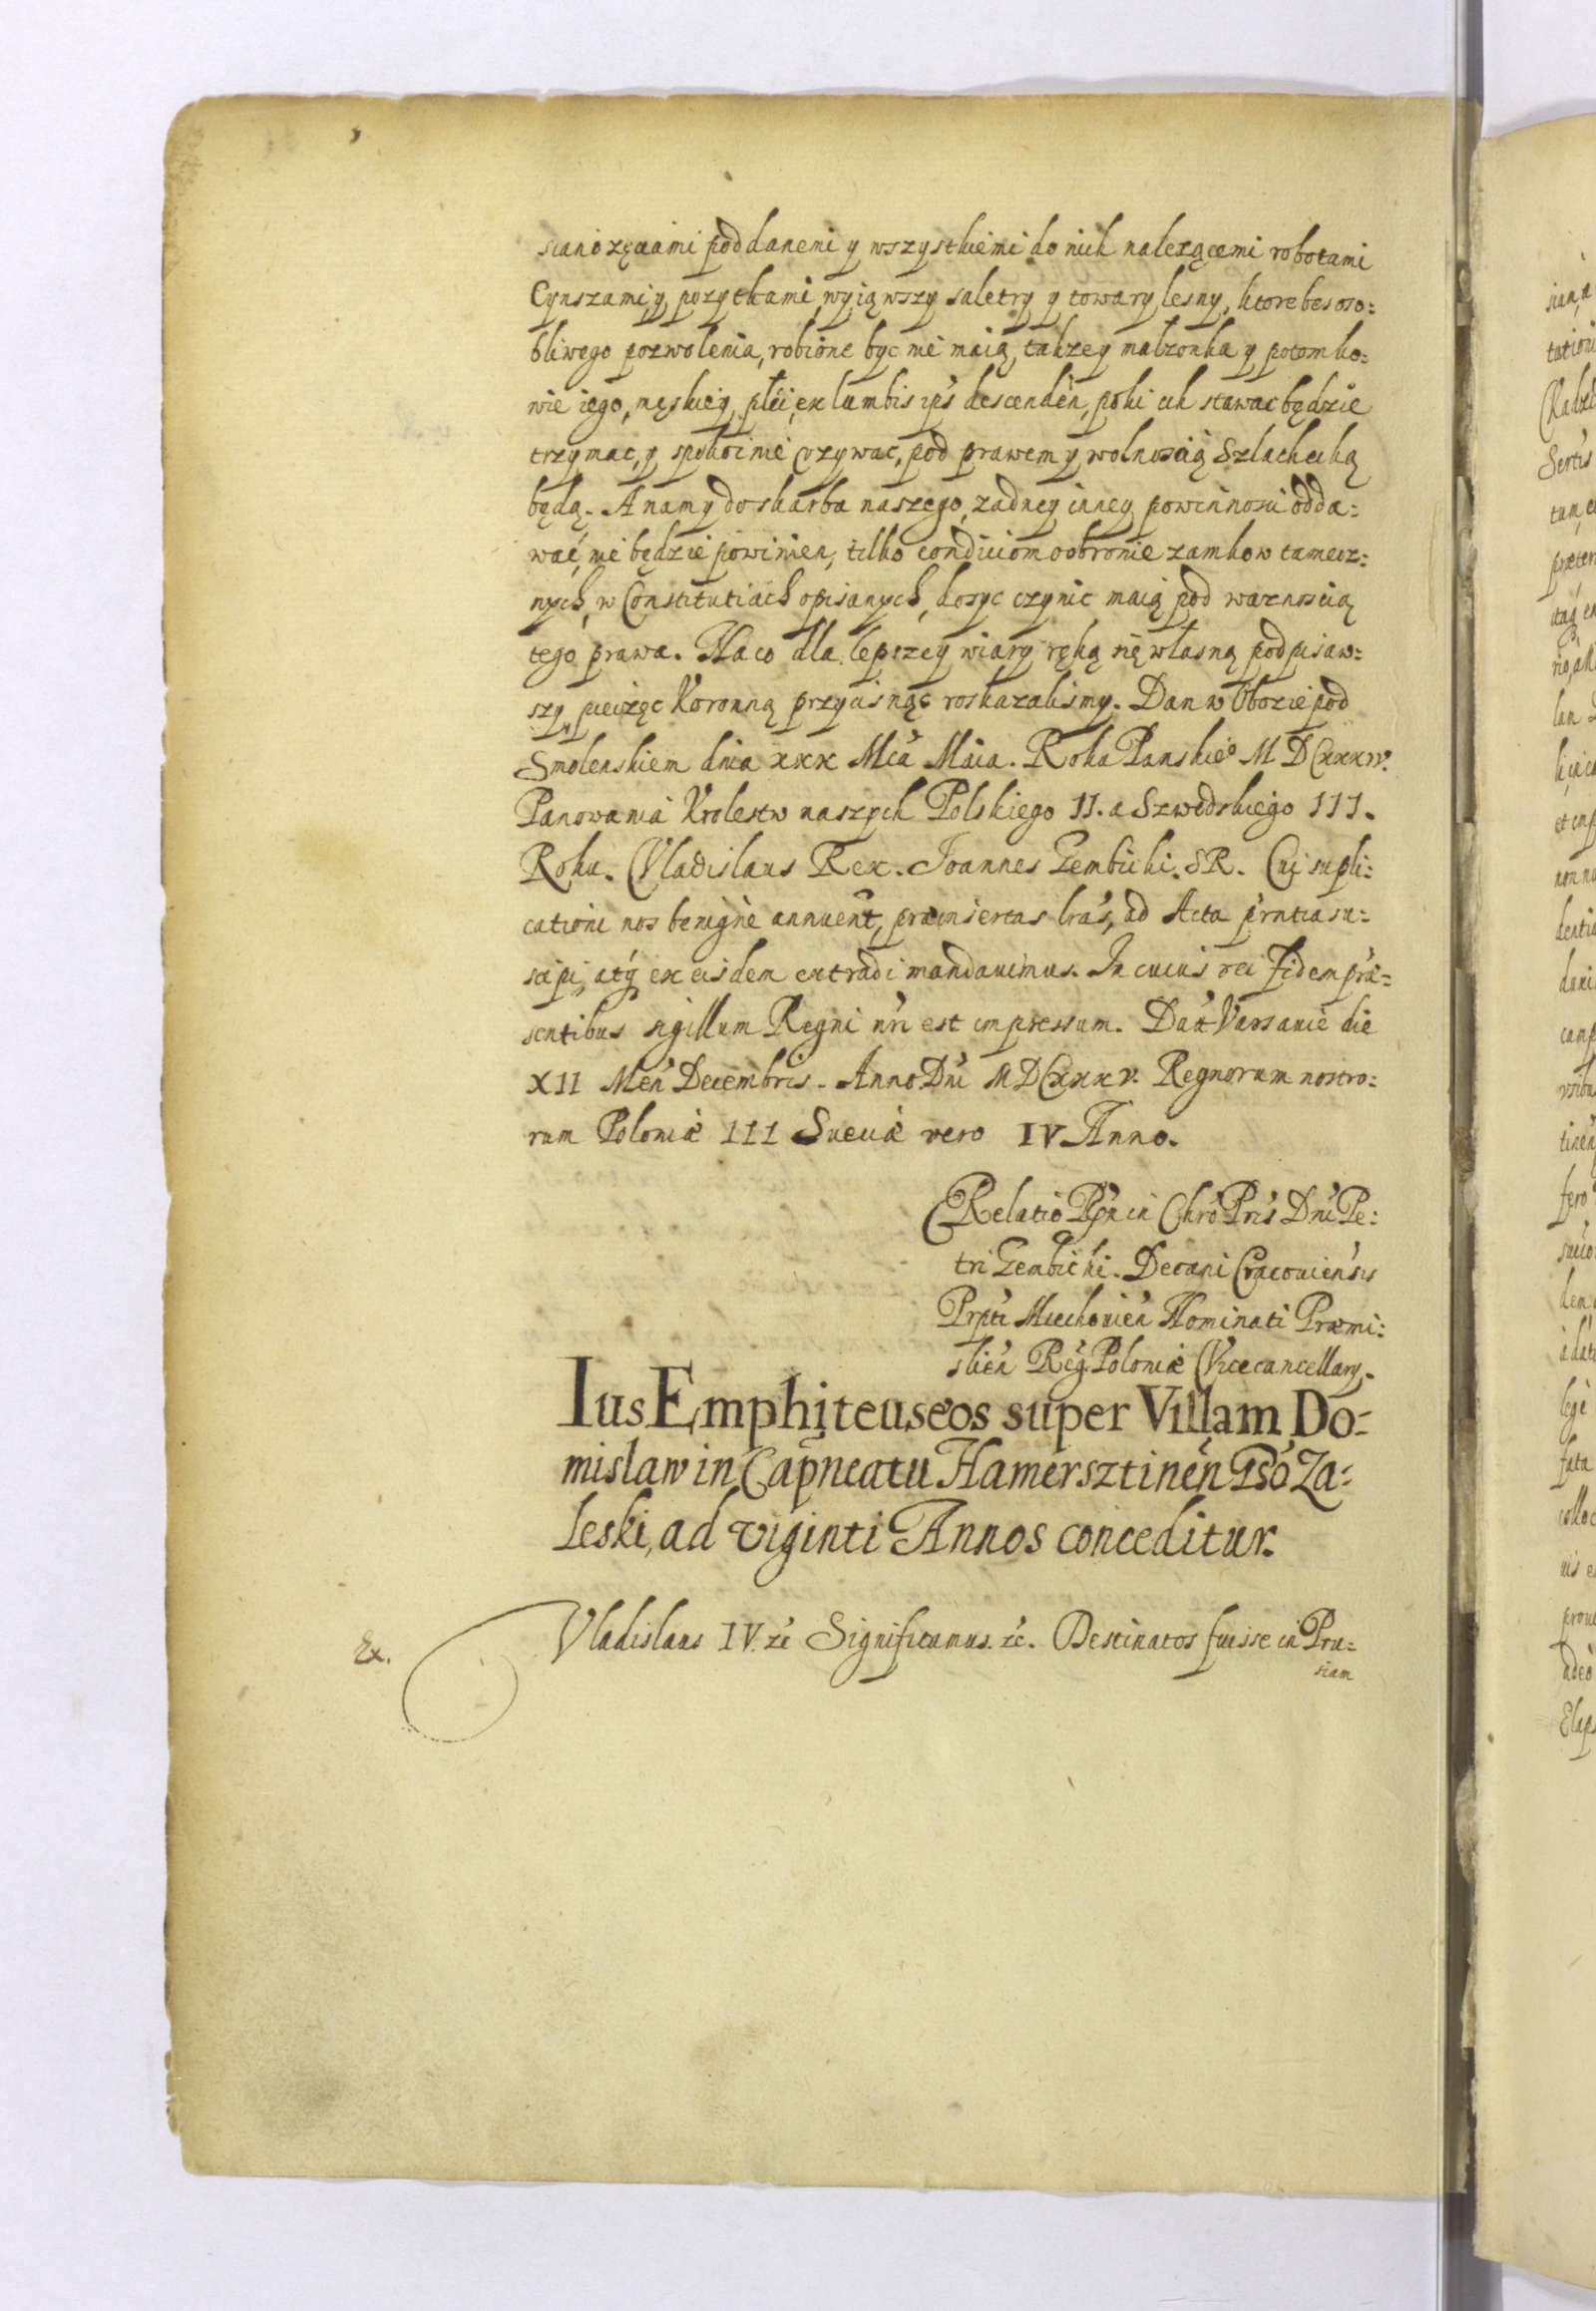 sianozęciami poddanemi y wszystkiemi do nich nalezącemi robotami
Cynszami y pozytkami wyiąwszy saletry y towary lesny, ktore bes oso:
bliwego pozwolenia, robione byc nie maią, takze y malzonka y potomko:
wie iego, męskiey płci, ex lumbis ip's descenden, poki ich stawac będzie
trzymac, y spokoinie uzywac, pod prawem y wolnoscią Szlachecką
będą. A nam y do skarbu naszego, zadney inney powinnosci odda:
wać, nie będzie powinien, tilko condiciom o obronie zamkow tamecz:
nych, w Constitutiach opisanych, dosyc czynic maią pod waznoscią
tego prawa. Na co dla lepszey wiary ręką się własną podpisaw:
szy, pieczęc Koronną przycisnąc roskazalismy. Dan w Obozie pod
Smolenskiem dnia xxx Mca Maia. Roku Panskieo MDCxxxiv.
Panowania Krolestw naszych Polskiego II. a Szwedskiego III.
Roku. Vladislaus Rex. Joannes Gembicki. SR. Cui supli:
cationi nos benigne annuent, præinsertas lras, ad Acta prntia su:
scipi, atq ex eisdem extradi mandauimus. In cuius rei fidem præ:
sentibus sigillum Regni nri est impressum. Dat Varsauie die
XII Men Decembris. Anno Dni MDCxxxv. Regnorum nostro:
rum Poloniæ III Sueciæ vero IV Anno.
Relatio Rssi in Chro Pris Dni Pe:
tri Gembicki. Decani Cracouiensis
Prpti Miechouien Nominati Præmi:
slien Reg. Poloniæ Vicecancellary.
Ius Emphiteuseos super Villam Do:
mislaw in Capneatu Hamersztinen Gso Za:
leski, ad viginti Annos conceditur.
Ex.
Vladislaus IV. zc Significamus. zc. Destinatos fuisse in Pru:
siam